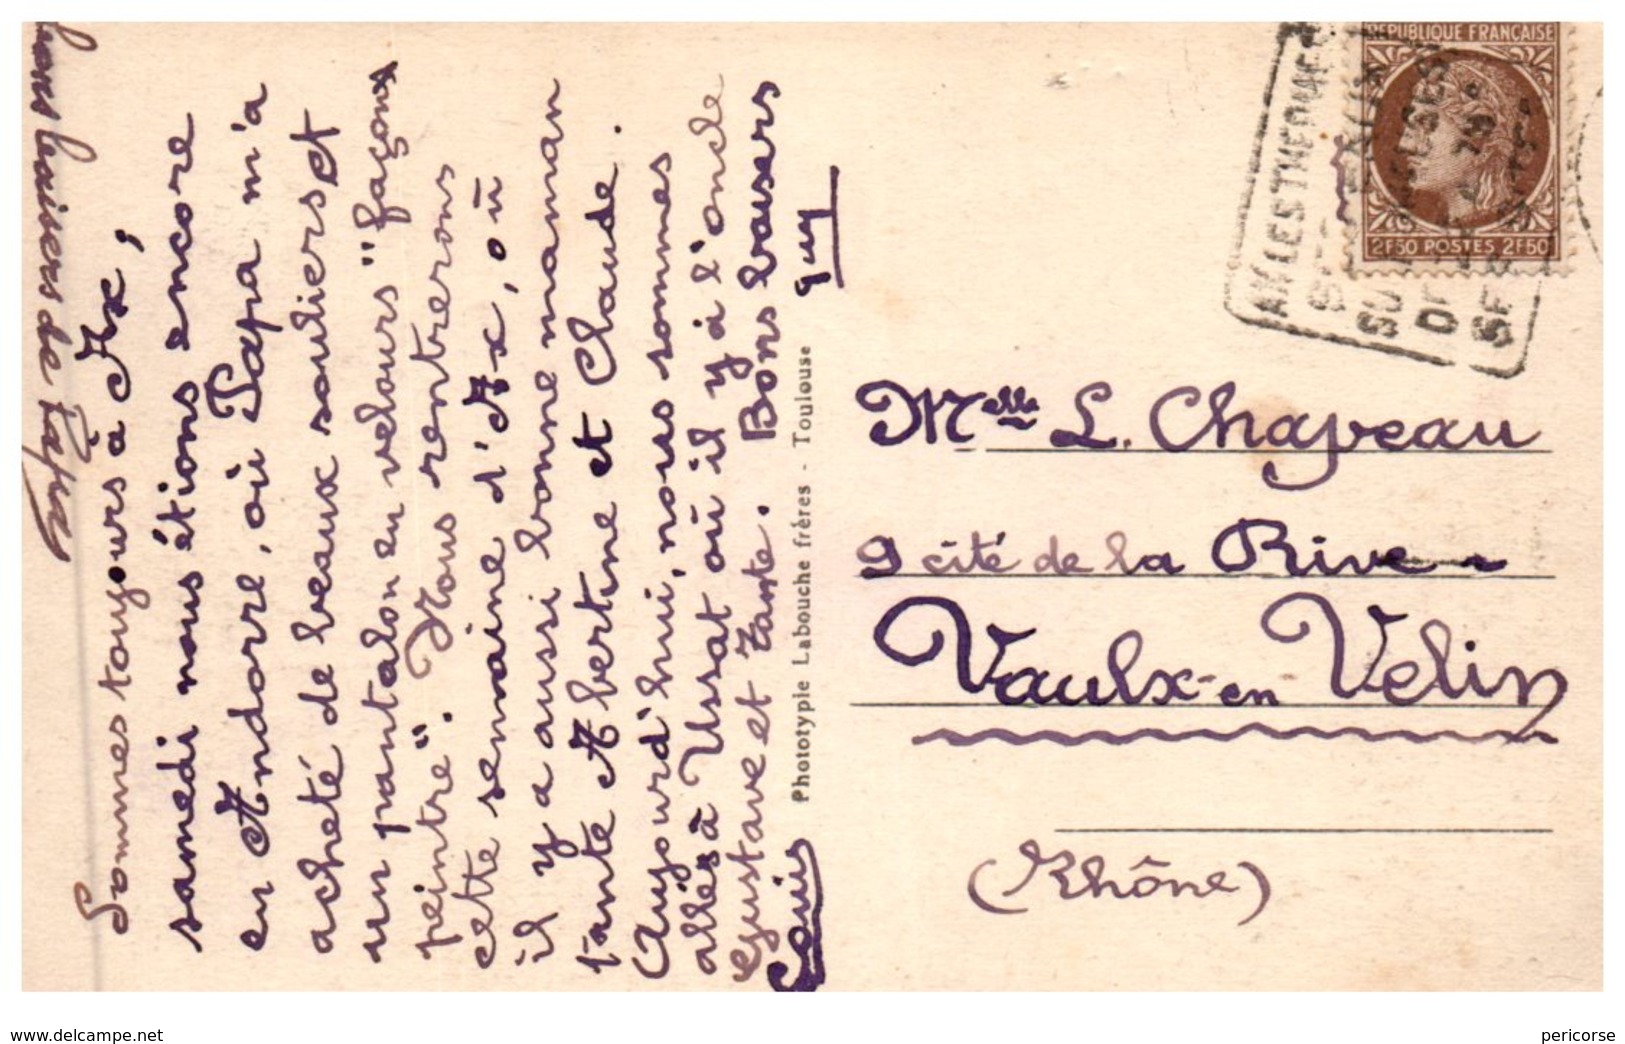 Bons baisers de Papa
Sommes toujours à Ax,
samedi nous étions encore
en Andorre, où Papa m'a
acheté de beaux souliers et
un pantalon en velours "façon
peintre". Nous rentrerons
cette semaine d'Ax, où
il y a aussi bonne maman
tante Albertine et Claude.
Aujourd'hui, nous sommes
allés à Ussat où il y a l'oncle
Gustave et Tante. Bons baisers
Louis Guy
Phototypie Labouche frères - Toulouse
REPUBLIQUE FRANÇAISE
2F50 POSTES 2F50
AX LES THERMES
Melle L. Chapeau
9 cité de la Rive
Vaulx-en-Velin
(Rhône)
www.delcampe.net
pericorse